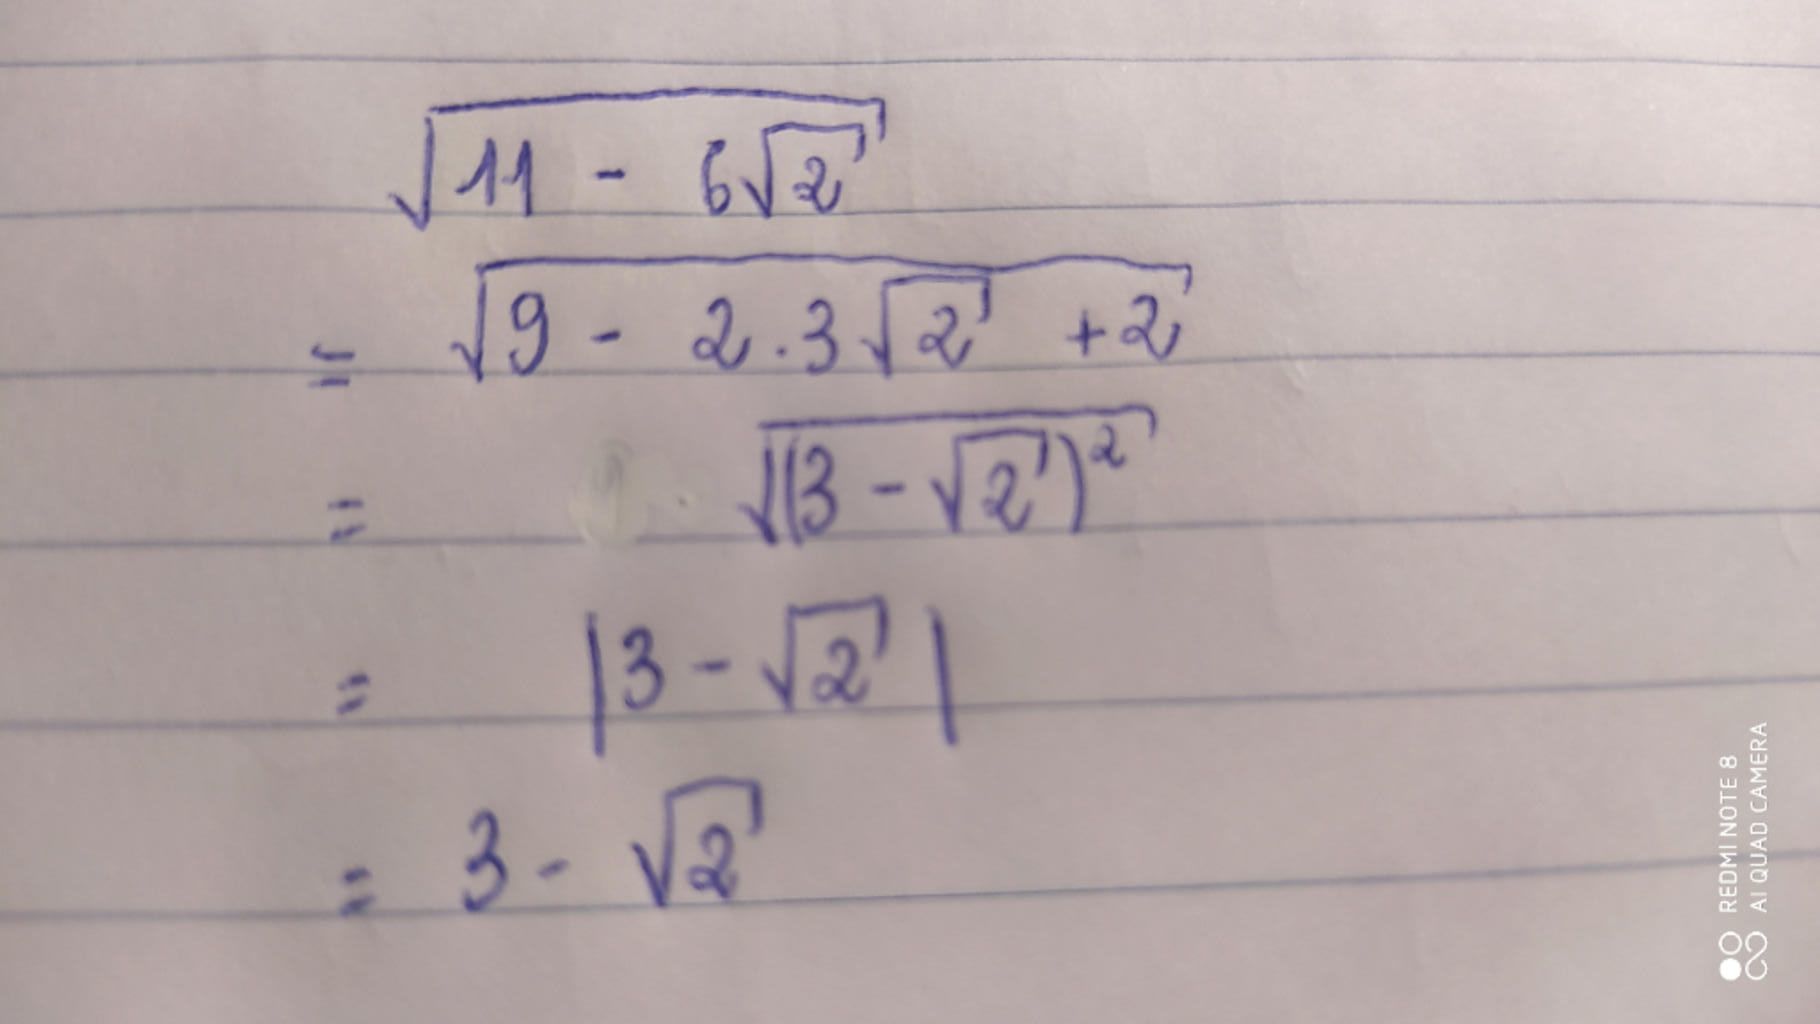 √(11 - 6√2)
= √(9 - 2.3√2 + 2)
= √((3 - √2)²)
= |3 - √2|
= 3 - √2
REDMI NOTE 8
AI QUAD CAMERA